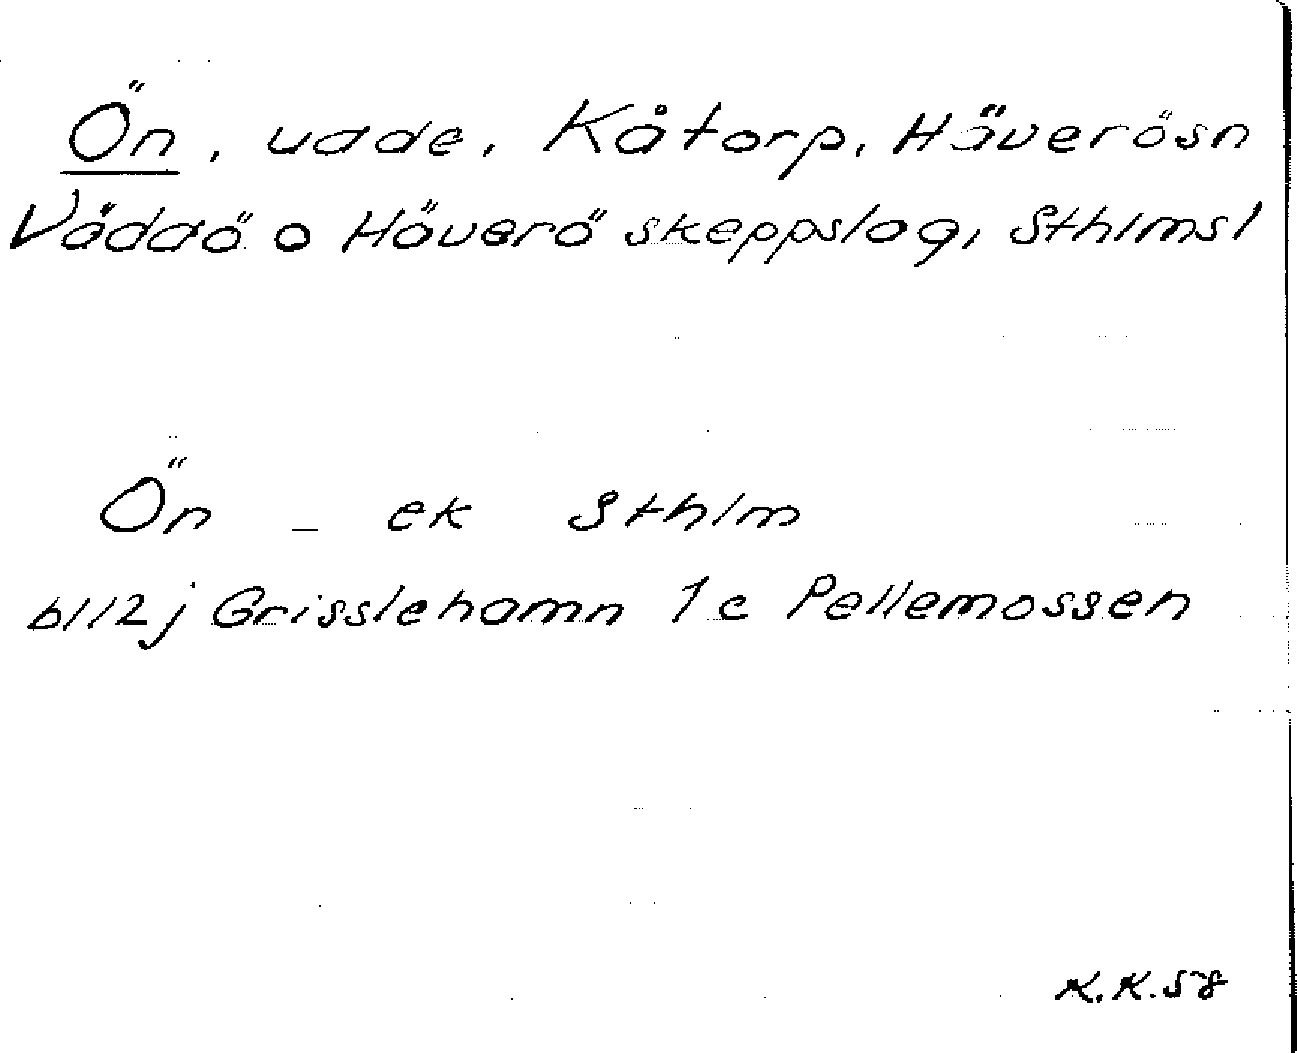 Ön, udde, Kåtorp, Häverösn
Väddö o Häverö skeppslag, Sthlmsl
Ön - ek Sthlm
bl 12j Grisslehamn 1c Pellemossen
K.K.58